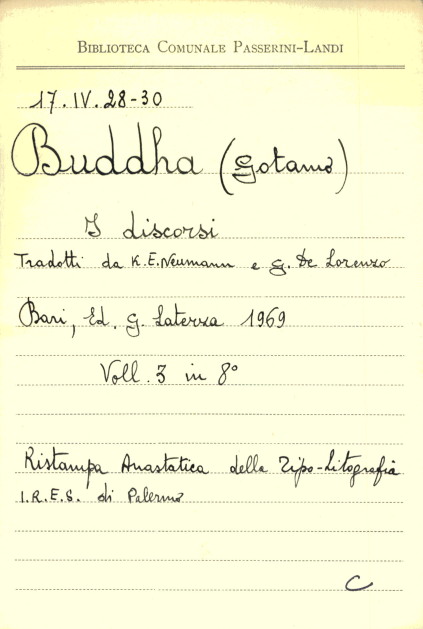 BIBLIOTECA COMUNALE PASSERINI-LANDI
17.IV.28-30
Buddha (Gotamo)
I discorsi
Tradotti da K.E.Neumann e G. De Lorenzo
Bari, Ed. G. Laterza 1969
Voll. 3 in 8°
Ristampa Anastatica della Tipo-Litografia
I.R.E.S. di Palermo
C